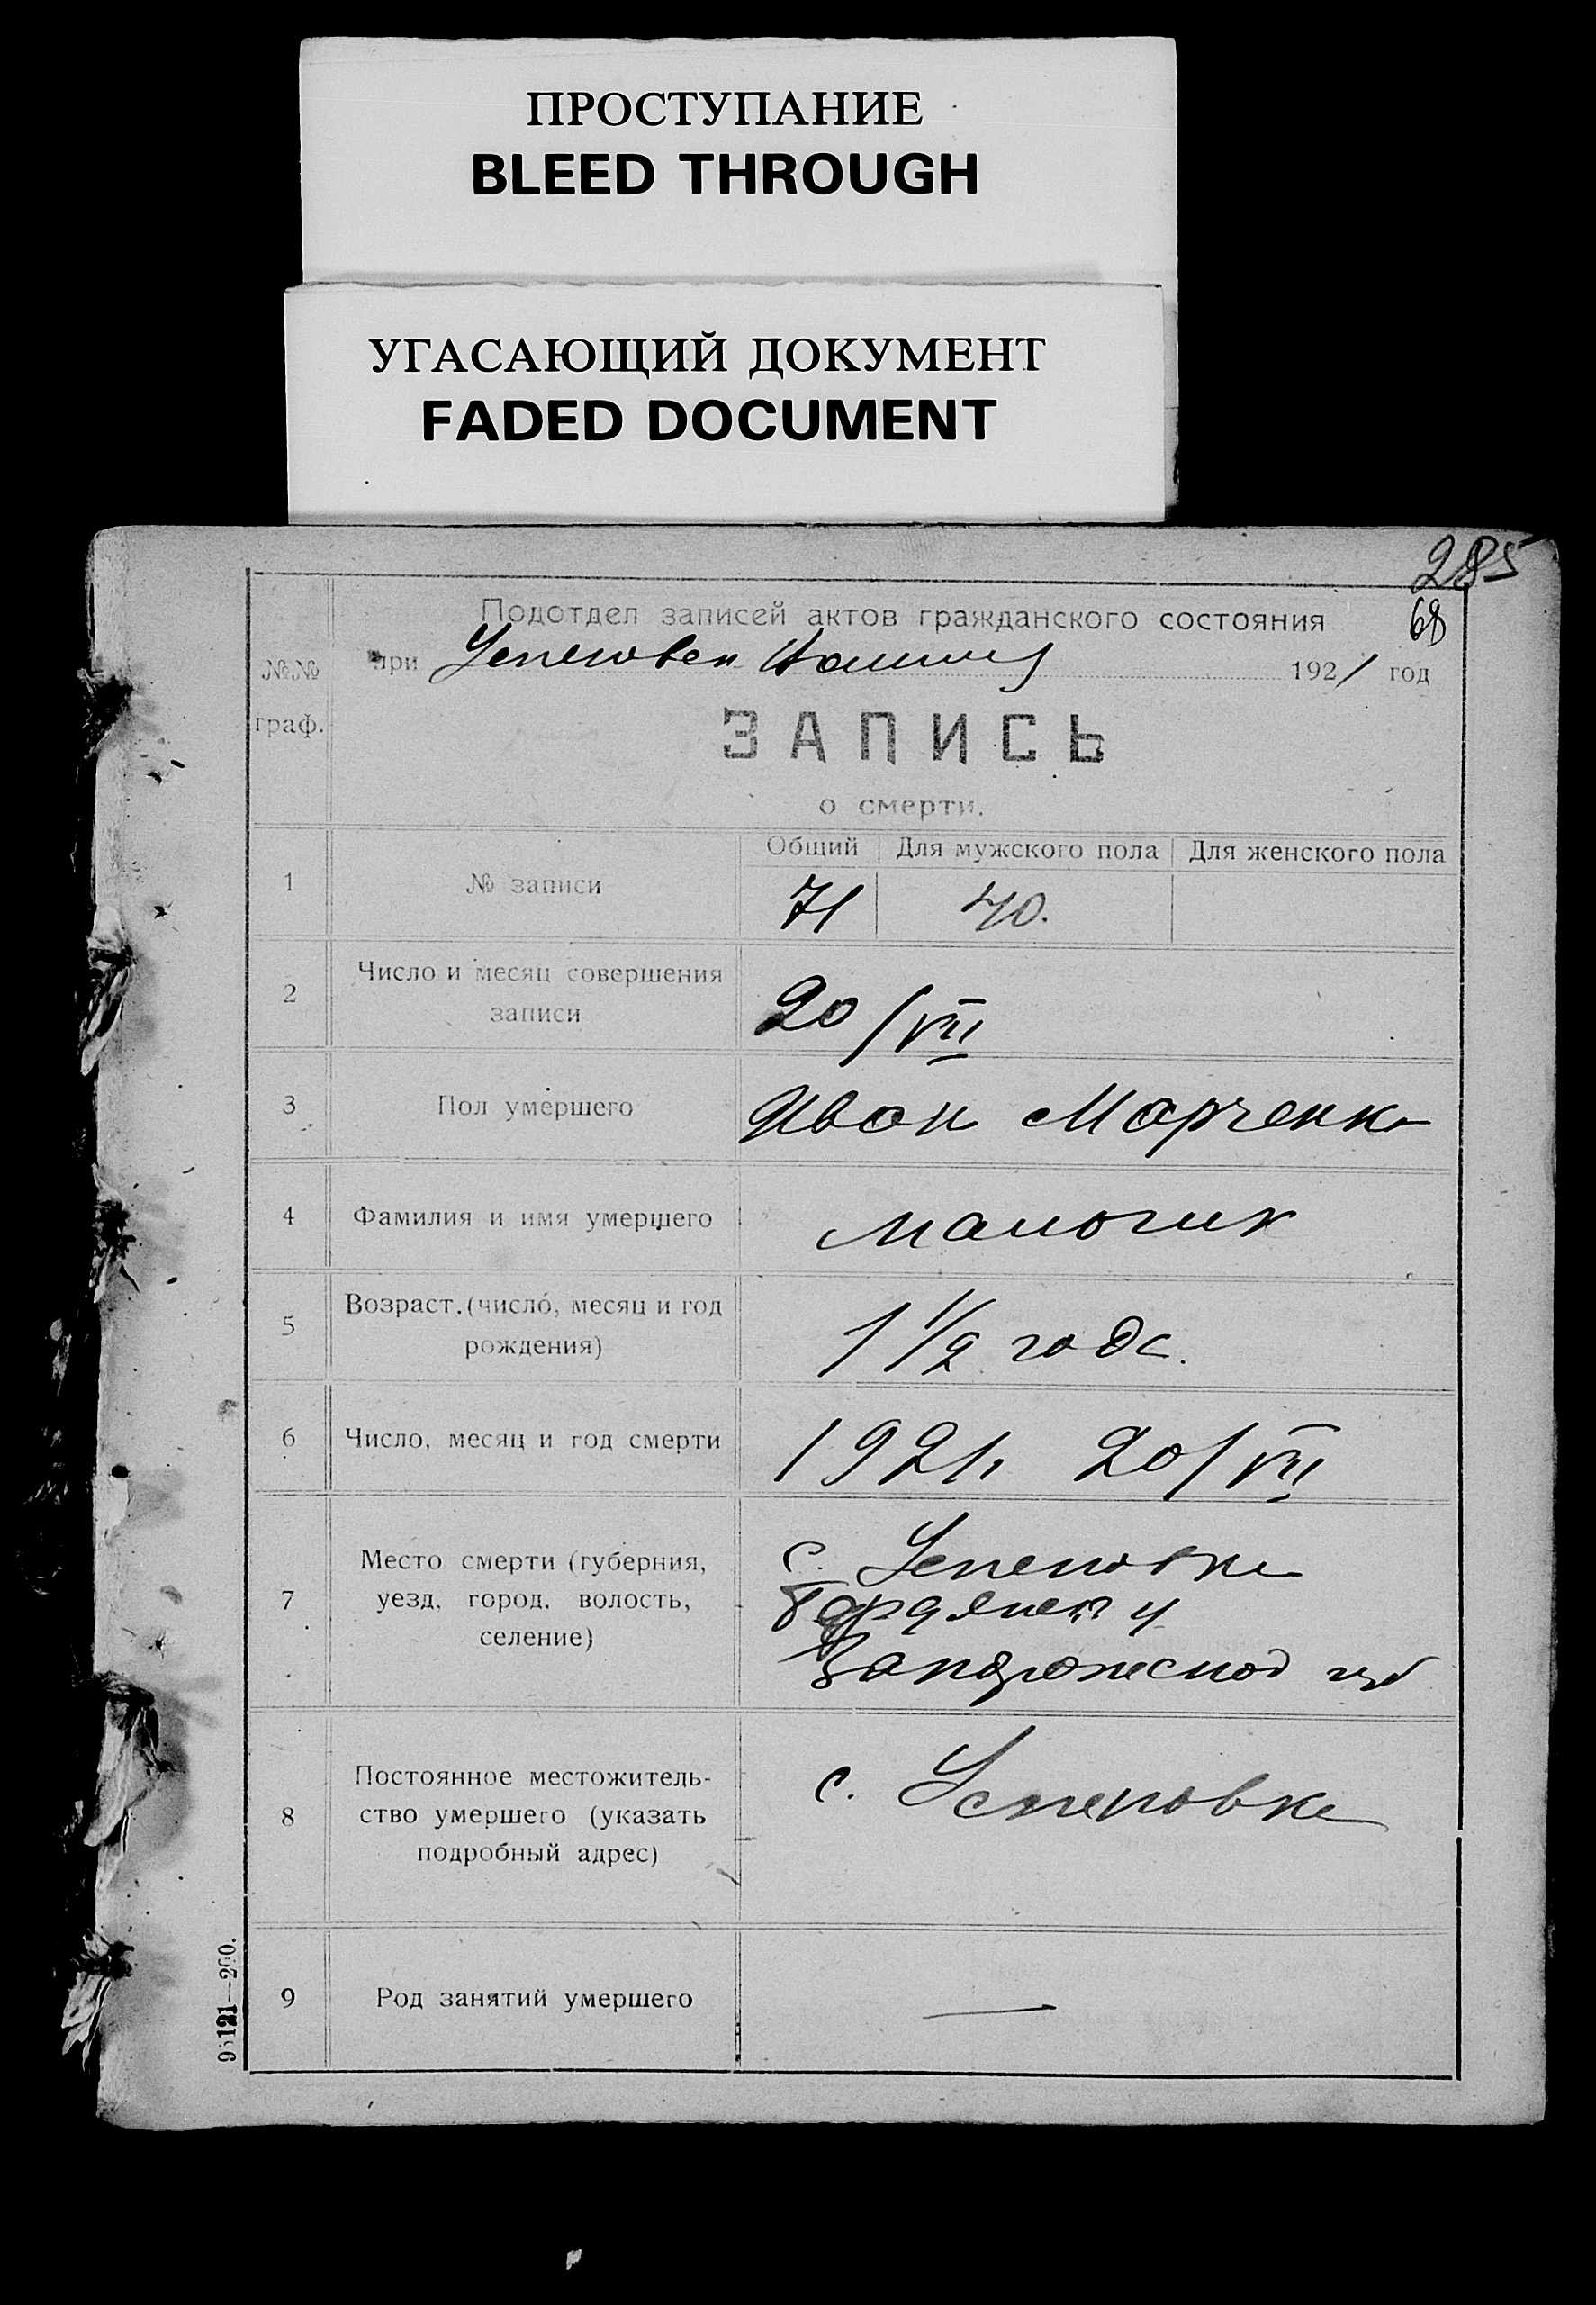 ПРОСТУПАНИЕ
BLEED THROUGH
УГАСАЮЩИЙ ДОКУМЕНТ
FADED DOCUMENT
285
68
Подотдел записей актов гражданского состояния
№№ при 1921 год
граф.
ЗАПИСЬ
о смерти.
Общий Для мужского пола Для женского пола
1 № записи 71 40.
2 Число и месяц совершения
записи
20/VII
3 Пол умершего Иван Марченко
4 Фамилия и имя умершего
5 Возраст (число, месяц и год
рождения)
1 1/2 года.
6 Число, месяц и год смерти 1921 20/VII
7 Место смерти (губерния,
уезд, город, волость,
селение)
с.
Запорожской губ
8 Постоянное местожитель-
ство умершего (указать
подробный адрес)
с.
9 Род занятий умершего —